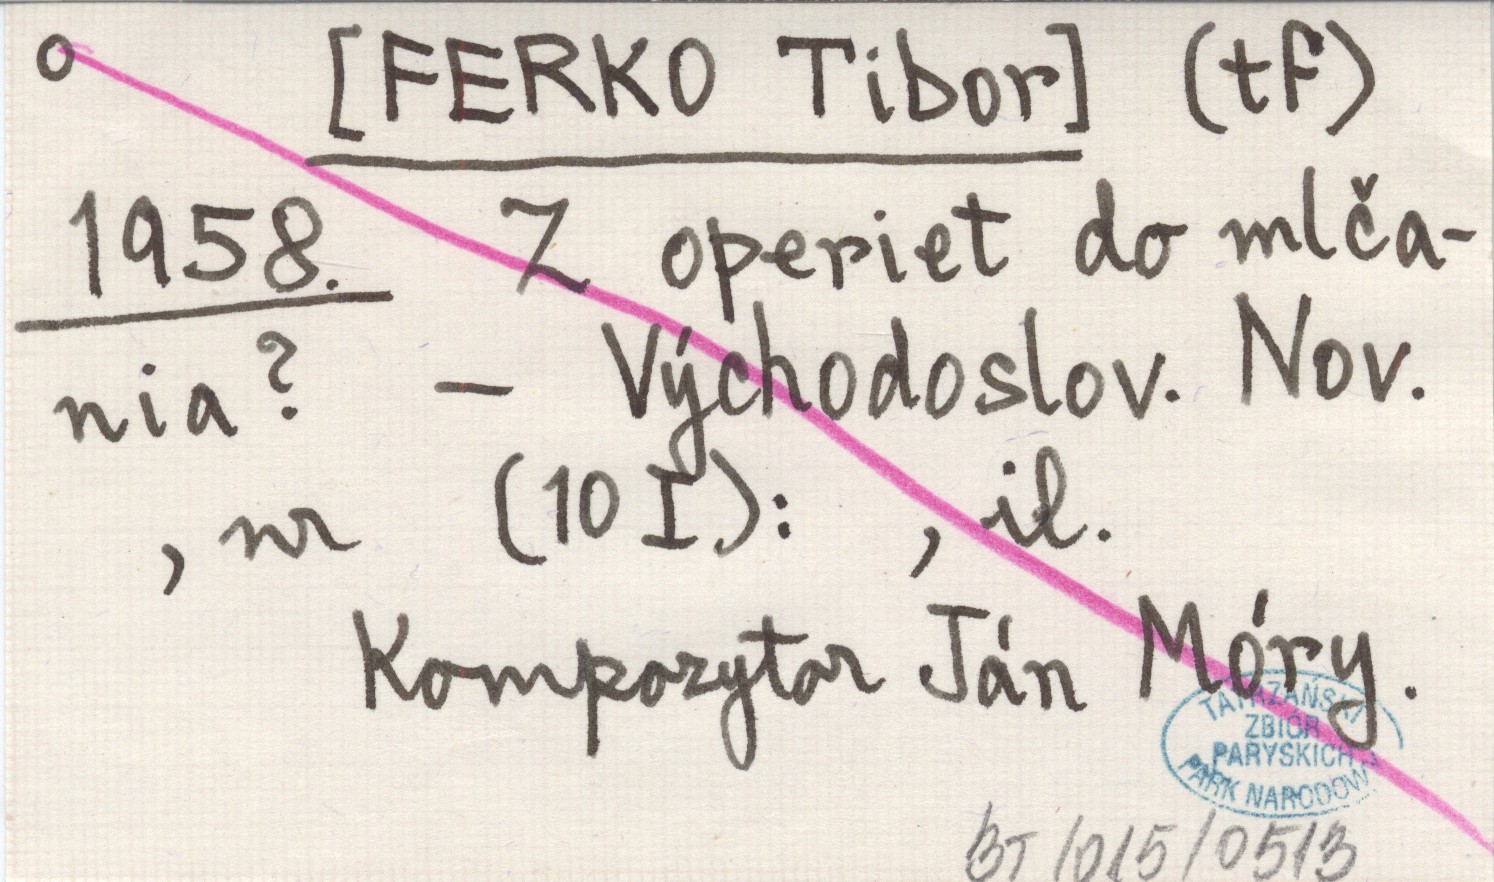 o [FERKO Tibor] (tf)
1958. Z operiet do mlča-
nia? – Východoslov. Nov.
, nr (10 I): , il.
Kompozytor Ján Móry.
ZBIÓR
PARYSKICH
PARK NARODOW
BT/015/0513